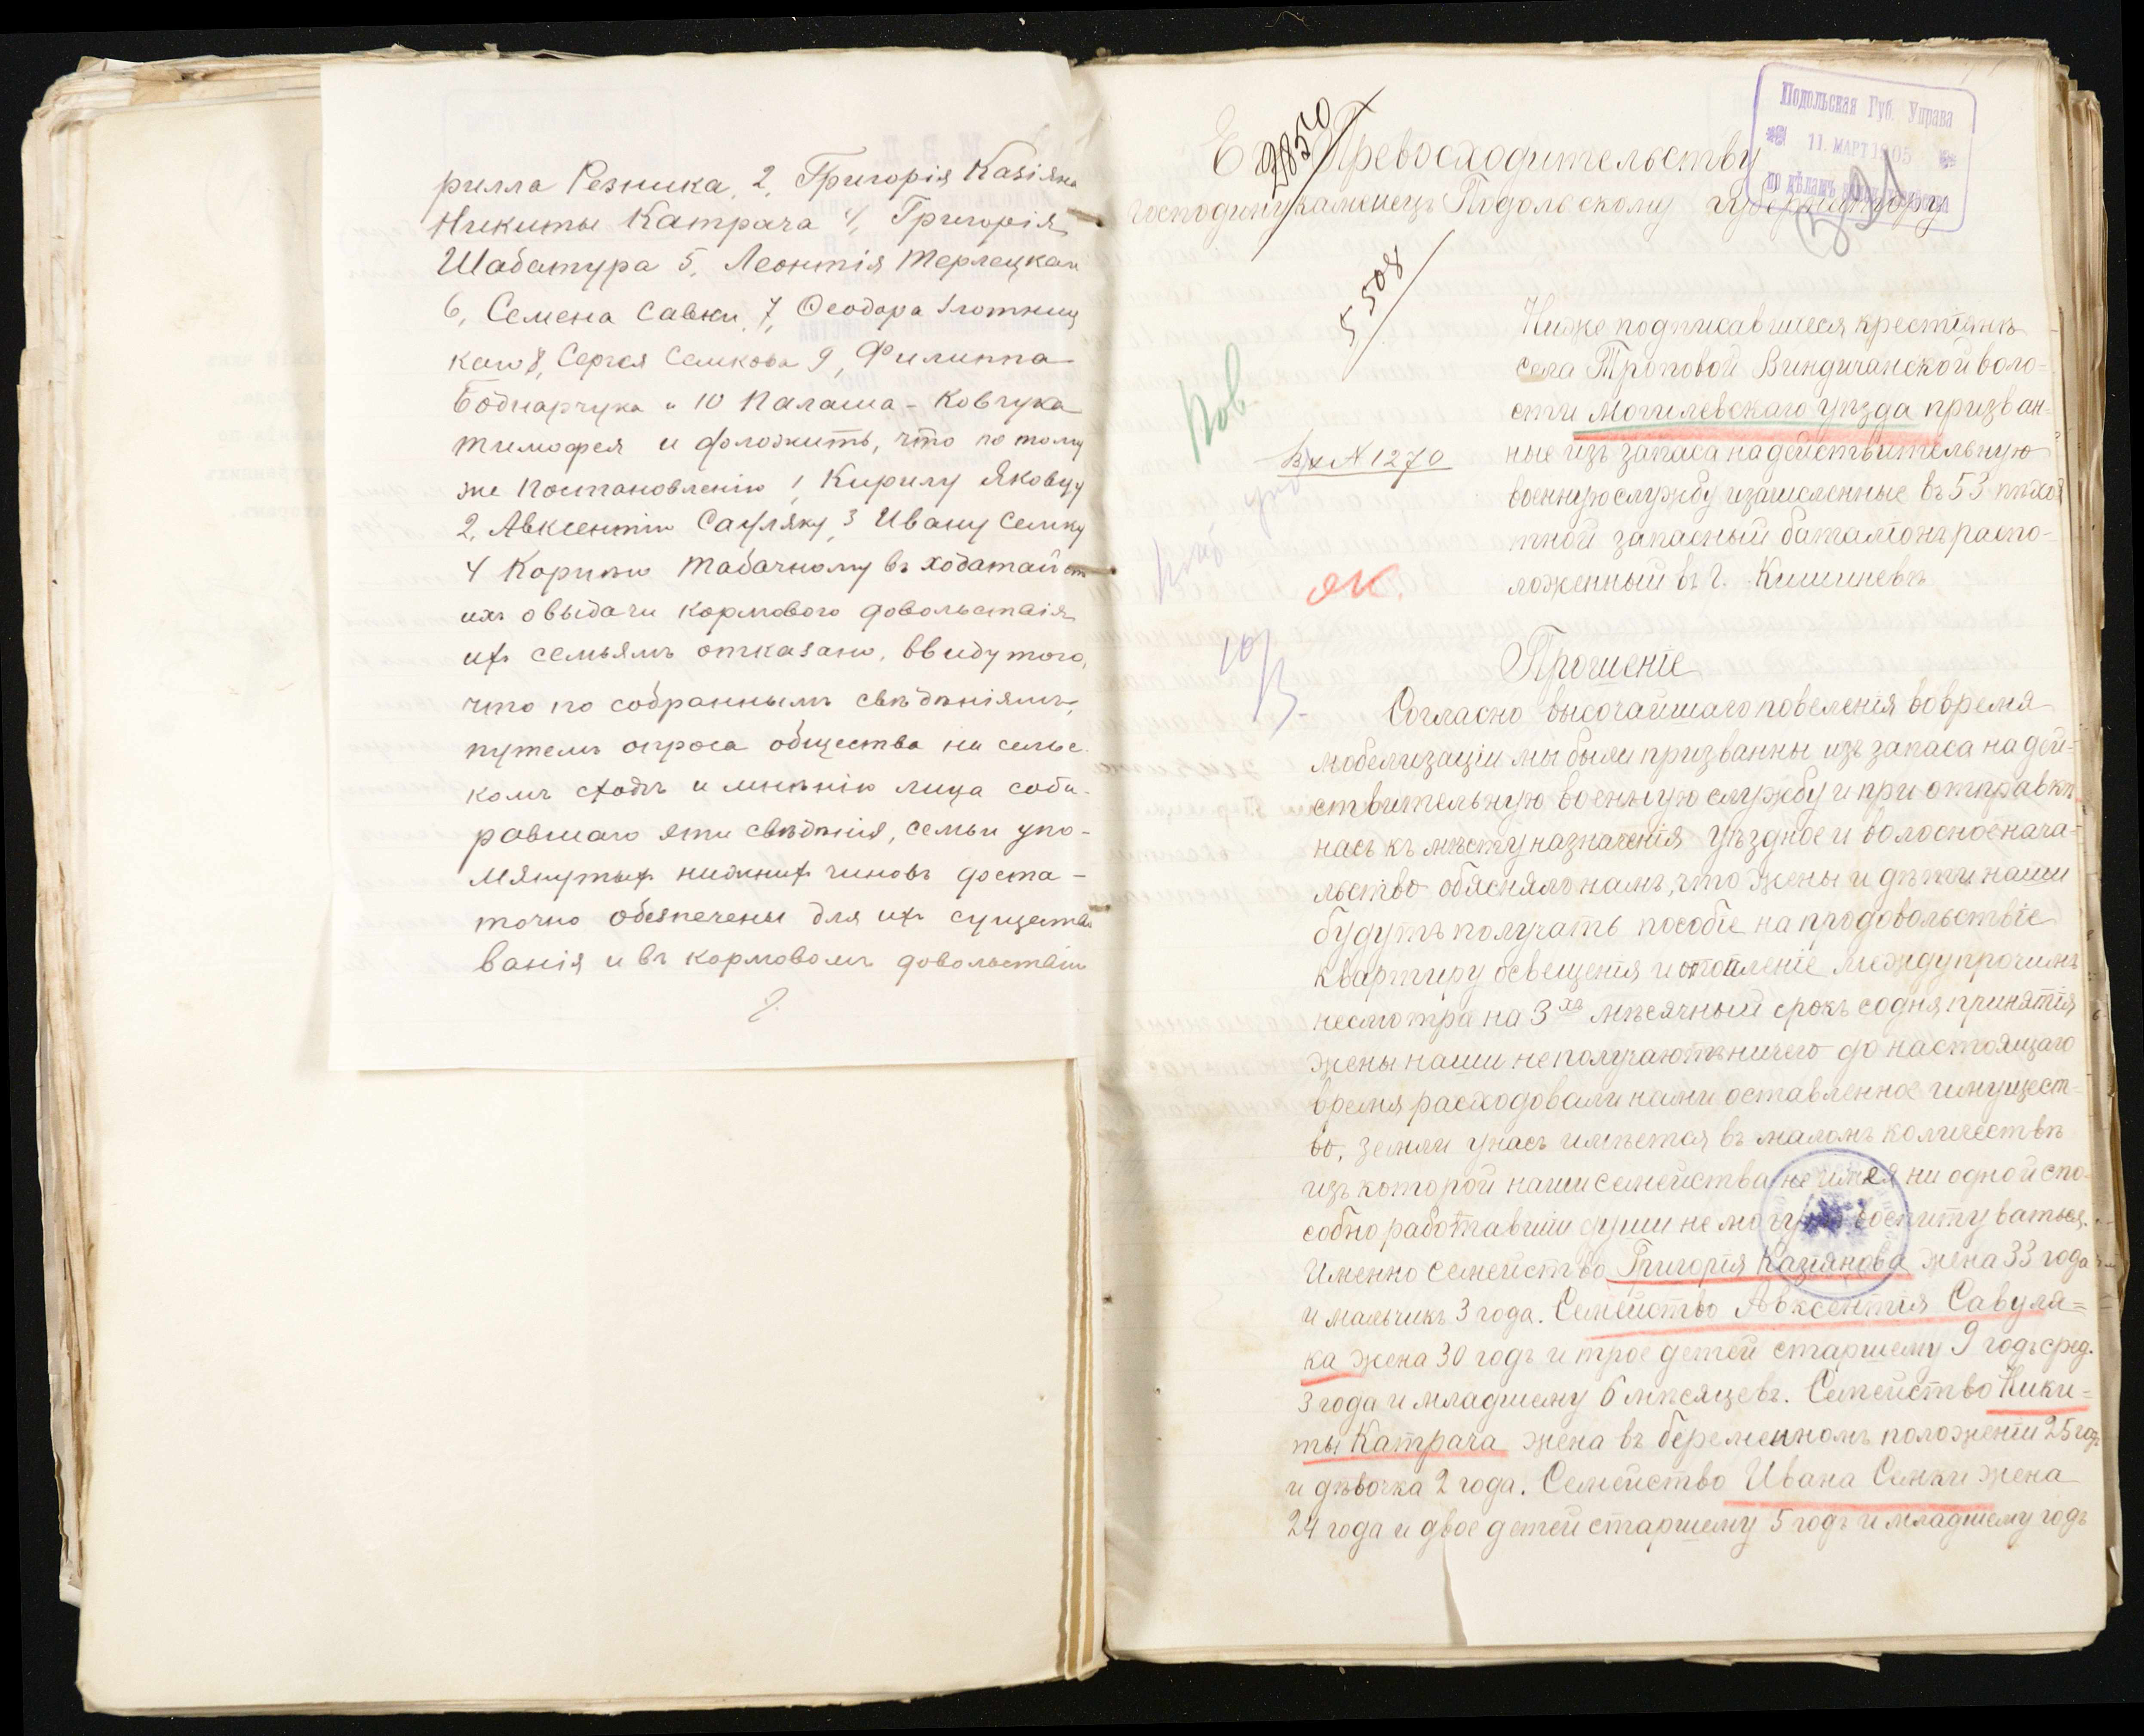 рилла Резника, 2, Григорія Казіяна
Никиты Катрача 4, Григорія
Шабатура 5, Леонтія Терлецкаго
6, Семена Савки, 7, Ѳеодора
каго 8, Сергея Семкова 9, Филиппа
Боднарчука и 10 Палаша - Ковчука
Тимофея и доложить, что по тому
же Постановленію 1, Кирилу Яковцу
2, Авксентію Сауляку, 3 Ивану Семку
4 Корнию Табачному въ ходатайст
ихъ о выдачи кормового довольствія
их семьямъ отказано, ввиду того,
что по собраннымъ свѣдѣніямъ,
путемъ опроса общества на сельс
комъ сходѣ и мнѣнію лица соби-
равшаго эти свѣдѣнія, семьи упо-
мянутых нижних чиновъ доста-
точно обезпечены для ихъ существо
ванія и въ кормовомъ довольствіи
Подольская Губ. Управа
11. МАРТ 1905
по дѣламъ
28510
Е Превосходительству
господину каменецъ Подольскому Губернатору
5508
Нов
Вх N 1270
10/
Ниже подписавшиеся крестіянѣ
села Троповой Виндичанской воло-
сти Могилевскаго уѣзда призван-
ные изъ запаса на действительную
военную службу изачисленные въ 53 пѣхо
тной запасный баталіонъ распо-
ложенный въ г. Кишиневѣ
Прошеніе
Согласно высочайшаго повеленія вовремя
мобелизаціи мы были призванны изъ запаса на дей-
ствительную военную службу и при отправкѣ
насъ къ мѣсту назначенія уѣздное и волосное нача-
льство обясняло намъ, что жены и дѣти наши
будутъ получать пособіе на продовольствіе
квартиру освещенія и отопленіе между прочимъ
несмотра на 3хъ мѣсячный срокъ содня принятія
жены наши неполучаютъ ничего до настоящаго
время расходовали нами оставленное имущест-
во, земли унасъ имѣется въ маломъ количествѣ
изъ которой наши семейства не имея ни одной спо-
собно работавшій души не могутъ воспитуваться.
Именно семейство Григорія Казіянова жена 33 года
и мальчикъ 3 года. Семейство Авксентія Савуля-
ка жена 30 годъ и трое детей старшему 9 годъ сред.
3 года и младшему 6 мѣсяцевъ. Семейство Ники-
ты Катрача жена въ беременномъ положеніи 25 годъ
и дѣвочка 2 года. Семейство Ивана Семки жена
24 года и двое детей старшему 5 годъ и младшему годъ